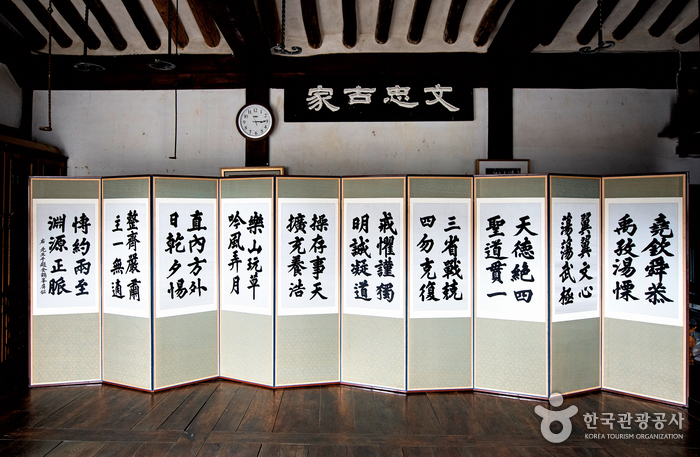 文忠古家
堯欽舜恭
禹孜湯慄
翼翼文心
蕩蕩武極
天德絶四
聖道貫一
三省戰兢
四勿克復
戒懼謹獨
明誠凝道
操存事天
擴充養浩
樂山玩草
吟風弄月
直內方外
日乾夕惕
整齊嚴肅
主一無適
博約兩至
淵源正脈
한국관광공사
KOREA TOURISM ORGANIZATION